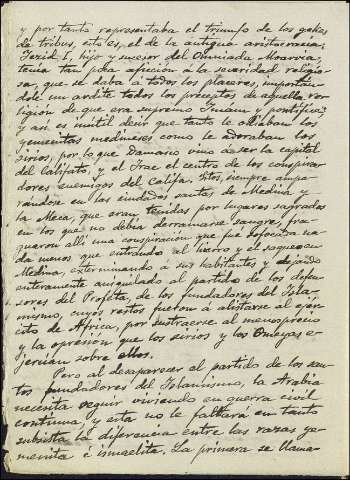 y por tanto representaba el triunfo de los jefes
de tribus, esto es, el de la antigua aristocracia.
Jezid I, hijo y sucesor del Omniada Moavia,
tenia tan poca aficion á la severidad religio-
sa, que se daba á todos los placeres, importán-
dole un ardite todos los preceptos de aquella re-
ligion de que era supremo Imam y pontífice;
y asi es inútil decir que tanto le odiaban los
yemenitas medineses como le adoraban los
sirios, por lo que Damasco vino á ser la capital
del Califato, y el Irac el centro de los conspira-
dores enemigos del califa. Estos, siempre ampa-
rándose en las ciudades santas de Medina y
la Meca, que eran tenidas por lugares sagrados
en los que no debia derramarse sangre, fra-
guaron alli una conspiracion que fué sofocada na-
da menos que entrando al hierro y el saqueo en
Medina, exterminando á sus habitantes y dejando
enteramente aniquilado al partido de los defen-
sores del Profeta, de los fundadores del Isla-
mismo, cuyos restos fueron á alistarse al ejér-
cito de África, por sustraerse al menosprecio
y la opresion que los sirios y los Omeyas e-
jercian sobre ellos.
Pero al desaparecer el partido de los san-
tos fundadores del Islamismo, la Arabia
necesita seguir viviendo en guerra civil
continua, y esta no le faltará en tanto
subsista la diferencia entre las razas ye-
menita é ismaelita. La primera se llama-